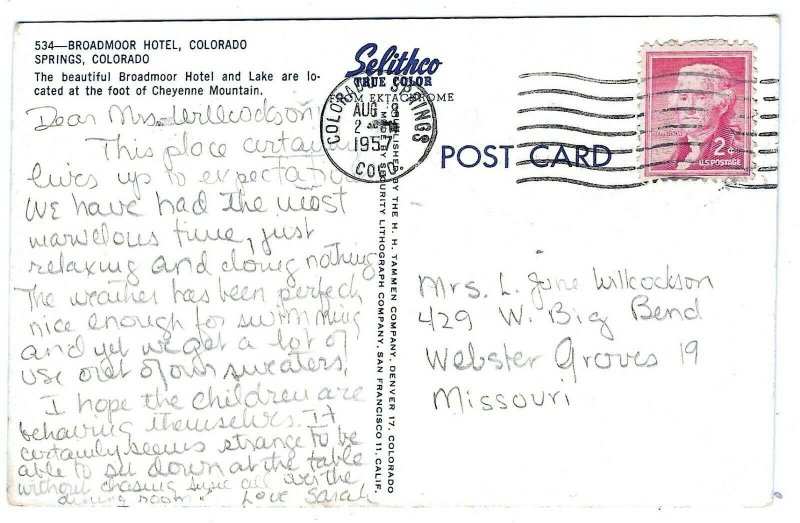 534—BROADMOOR HOTEL, COLORADO
SPRINGS, COLORADO
The beautiful Broadmoor Hotel and Lake are lo-
cated at the foot of Cheyenne Mountain.
Dear Mrs. Willcockson
This place certainly
lives up to expectation
We have had the most
marvelous time, just
relaxing and doing nothing
The weather has been perfect,
nice enough for swimming
and yet we get a lot of
use out of our sweaters.
I hope the children are
behaving themselves. It
certainly seems strange to be
able to sit down at the table
without chasing Susie all over the
dining room. Love Sarah
Selithco
TRUE COLOR
FROM EKTACHROME
PUBLISHED BY THE H. H. TAMMEN COMPANY, DENVER 17, COLORADO
MADE BY SECURITY LITHOGRAPH COMPANY, SAN FRANCISCO 11, CALIF.
COLORADO SPRINGS
AUG 8
2
195
COLO.
POST CARD
2¢
U.S. POSTAGE
Mrs. L. June Willcockson
429 W. Big Bend
Webster Groves 19
Missouri